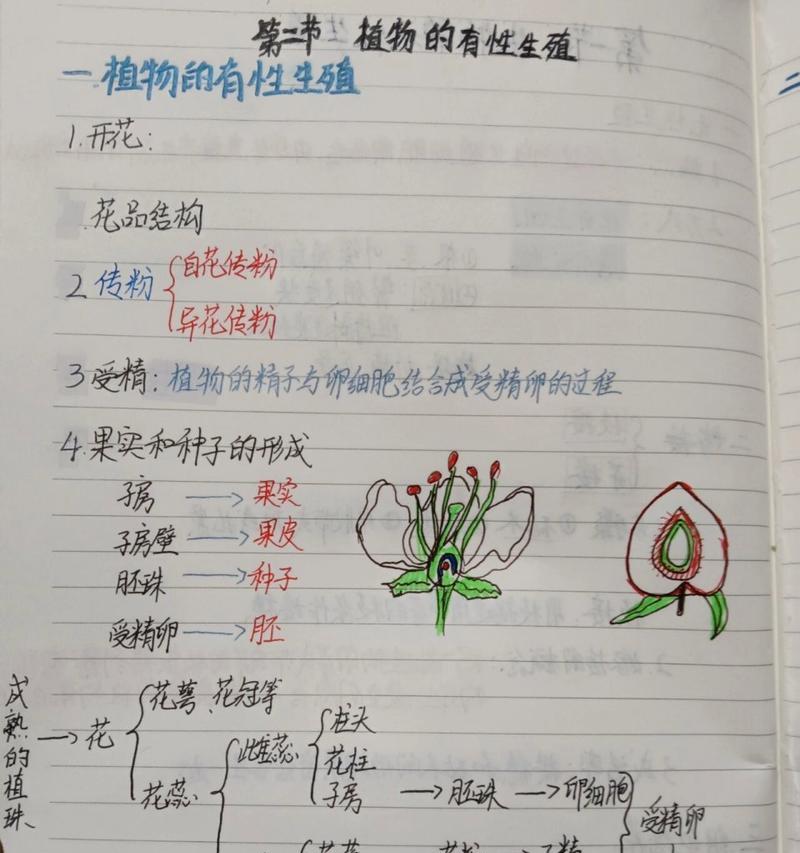 第二节 植物的有性生殖
一.植物的有性生殖
1.开花:
花品结构
2.传粉 自花传粉
异花传粉
3 受精:植物的精子与卵细胞结合成受精卵的过程
4.果实和种子的形成
子房 → 果实
子房壁 → 果皮
胚珠 → 种子
受精卵 → 胚
成熟的植珠 → 花
花萼、花冠等
花蕊
雌蕊
柱头
花柱
子房 → 胚珠 → 卵细胞
受精卵